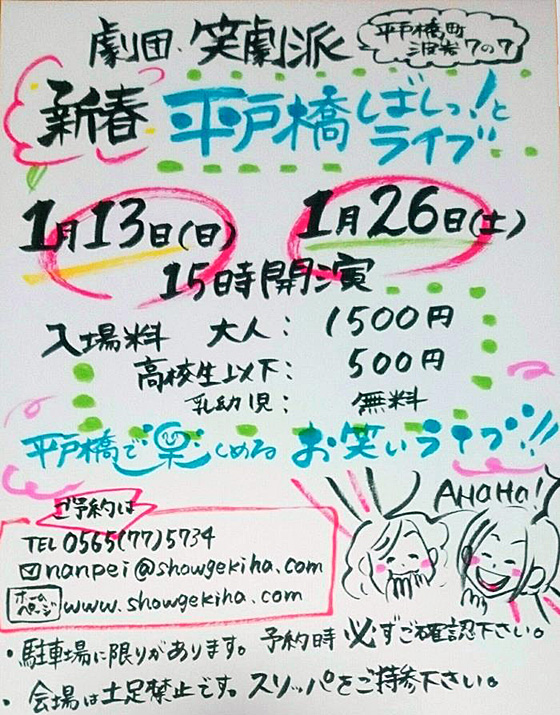 劇団・笑劇派
平戸橋町
波岩7の7
新春 平戸橋 しばしっ!と
ライブ
1月13日(日) 1月26日(土)
15時開演
入場料 大人: 1500円
高校生以下: 500円
乳幼児: 無料
平戸橋で楽しめる お笑いライブ!!
AHaHa!
ご予約は
TEL 0565(77)5734
nanpei@showgekiha.com
ホームページ www.showgekiha.com
・駐車場に限りがあります。予約時必ずご確認下さい。
・会場は土足禁止です。スリッパをご持参下さい。